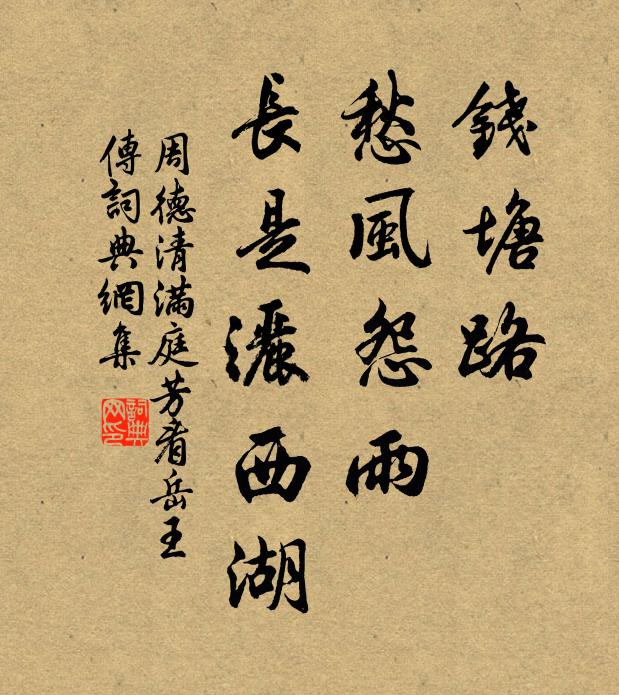 錢塘路
愁風怨雨
長是灑西湖
周德清滿庭芳看岳王
傳詞典網集
詞典
网印